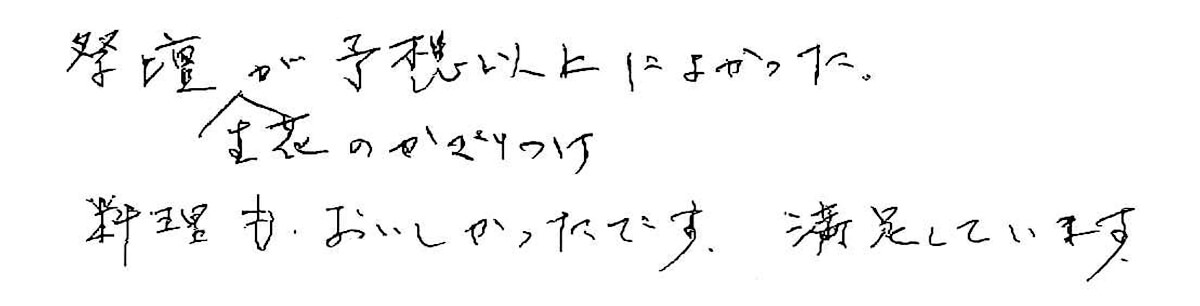 祭壇が予想以上によかった。
生花のかざりつけ
料理も、おいしかったです。満足しています。